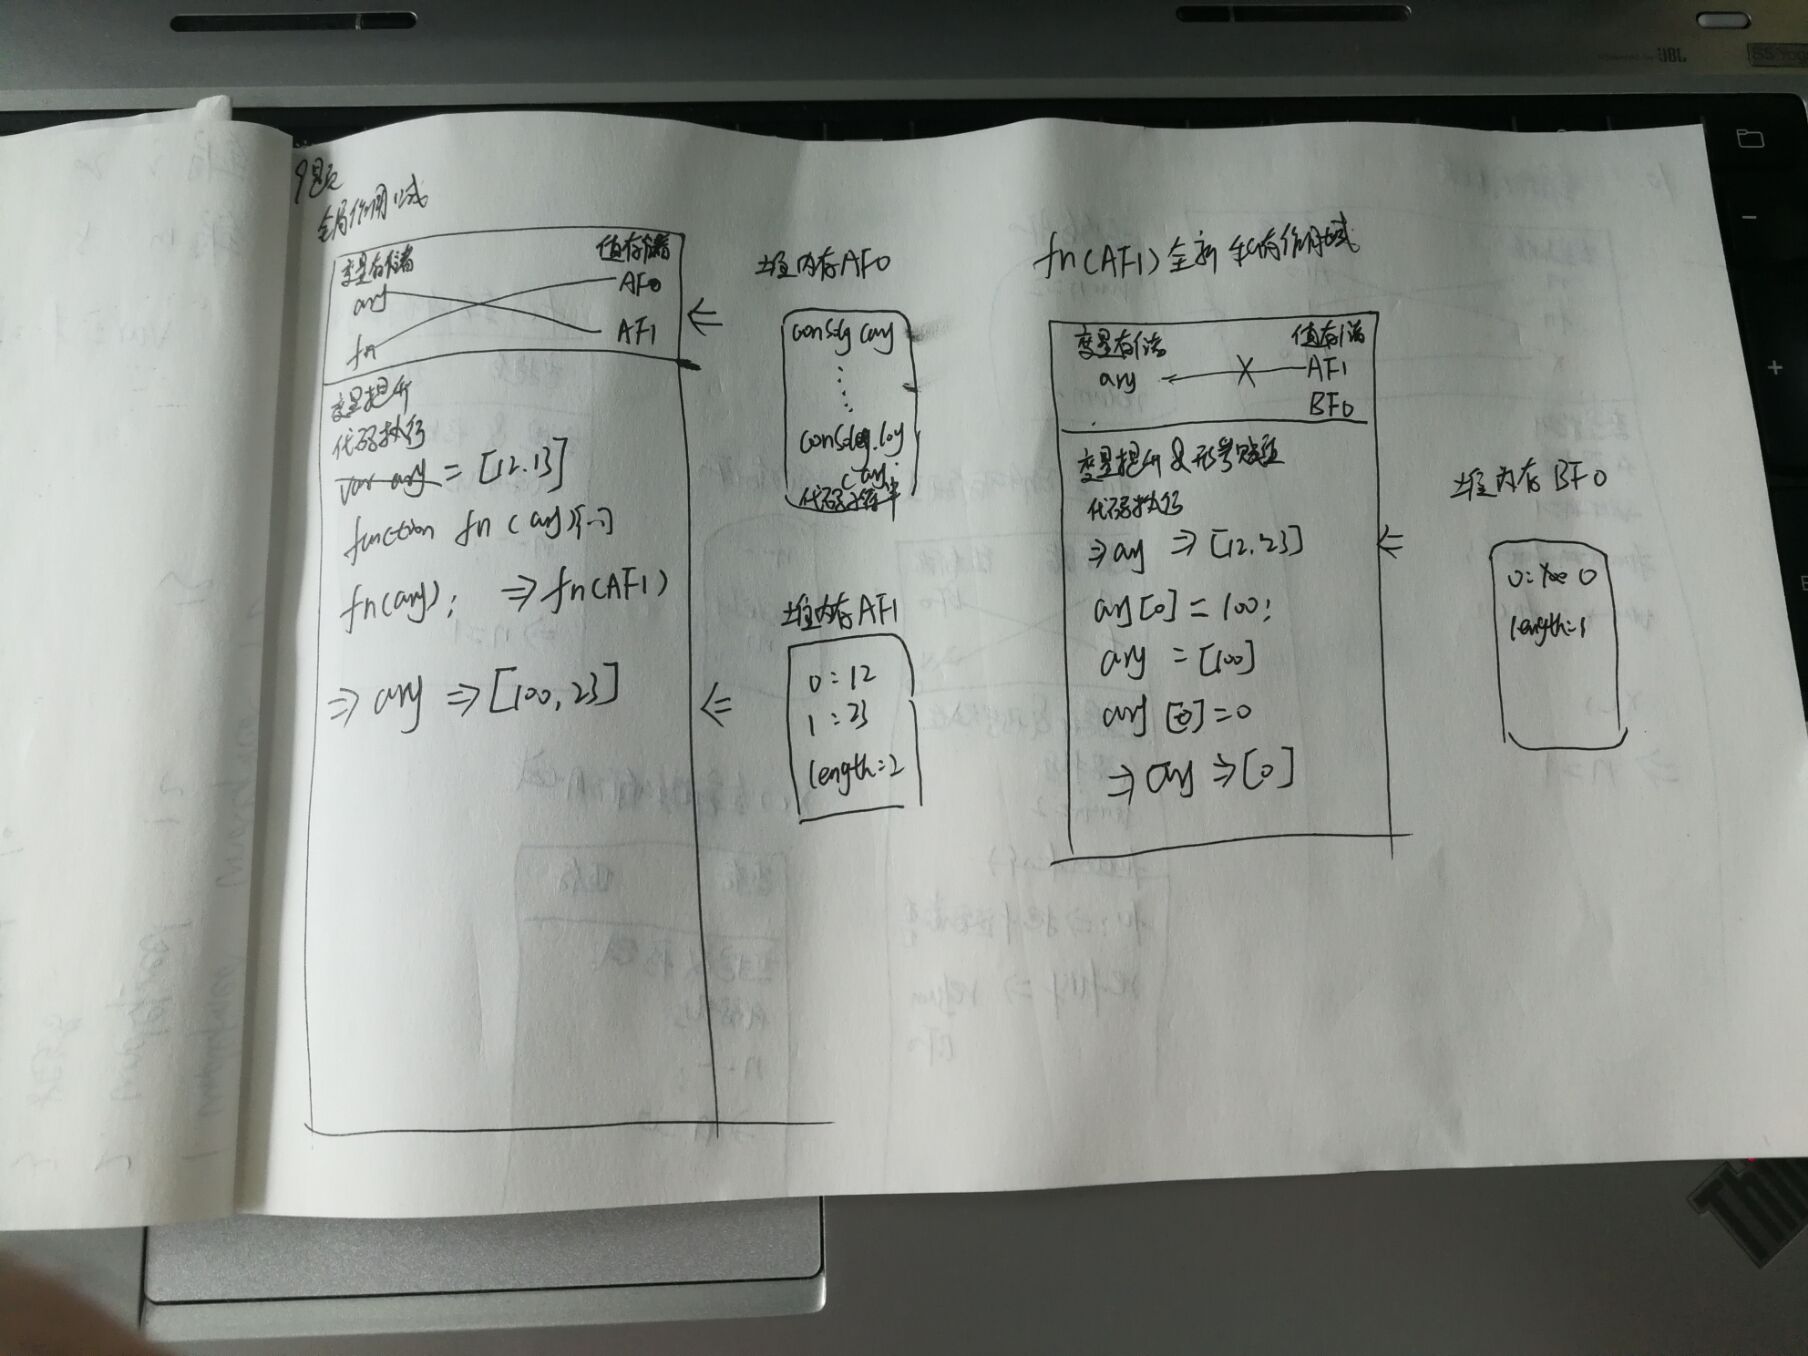 9题
全局作用域
变量存储 值存储
ary AF0
fn AF1
变量提升
代码执行
var ary = [12.13]
function fn (ary){…}
fn(ary); ⇒ fn(AF1)
⇒ ary ⇒ [100,23]
堆内存AF0
ary
console.log
(ary);
代码字符串
堆内存AF1
0:12
1:23
length:2
fn(AF1)全新私有作用域
变量存储 值存储
ary AF1
BF0
变量提升&形参赋值
代码执行
⇒ ary ⇒ [12.23]
ary[0] = 100;
ary = [100]
ary [0] = 0
⇒ ary ⇒ [0]
堆内存 BF0
0: 100 0
length:1
JBL
Thi